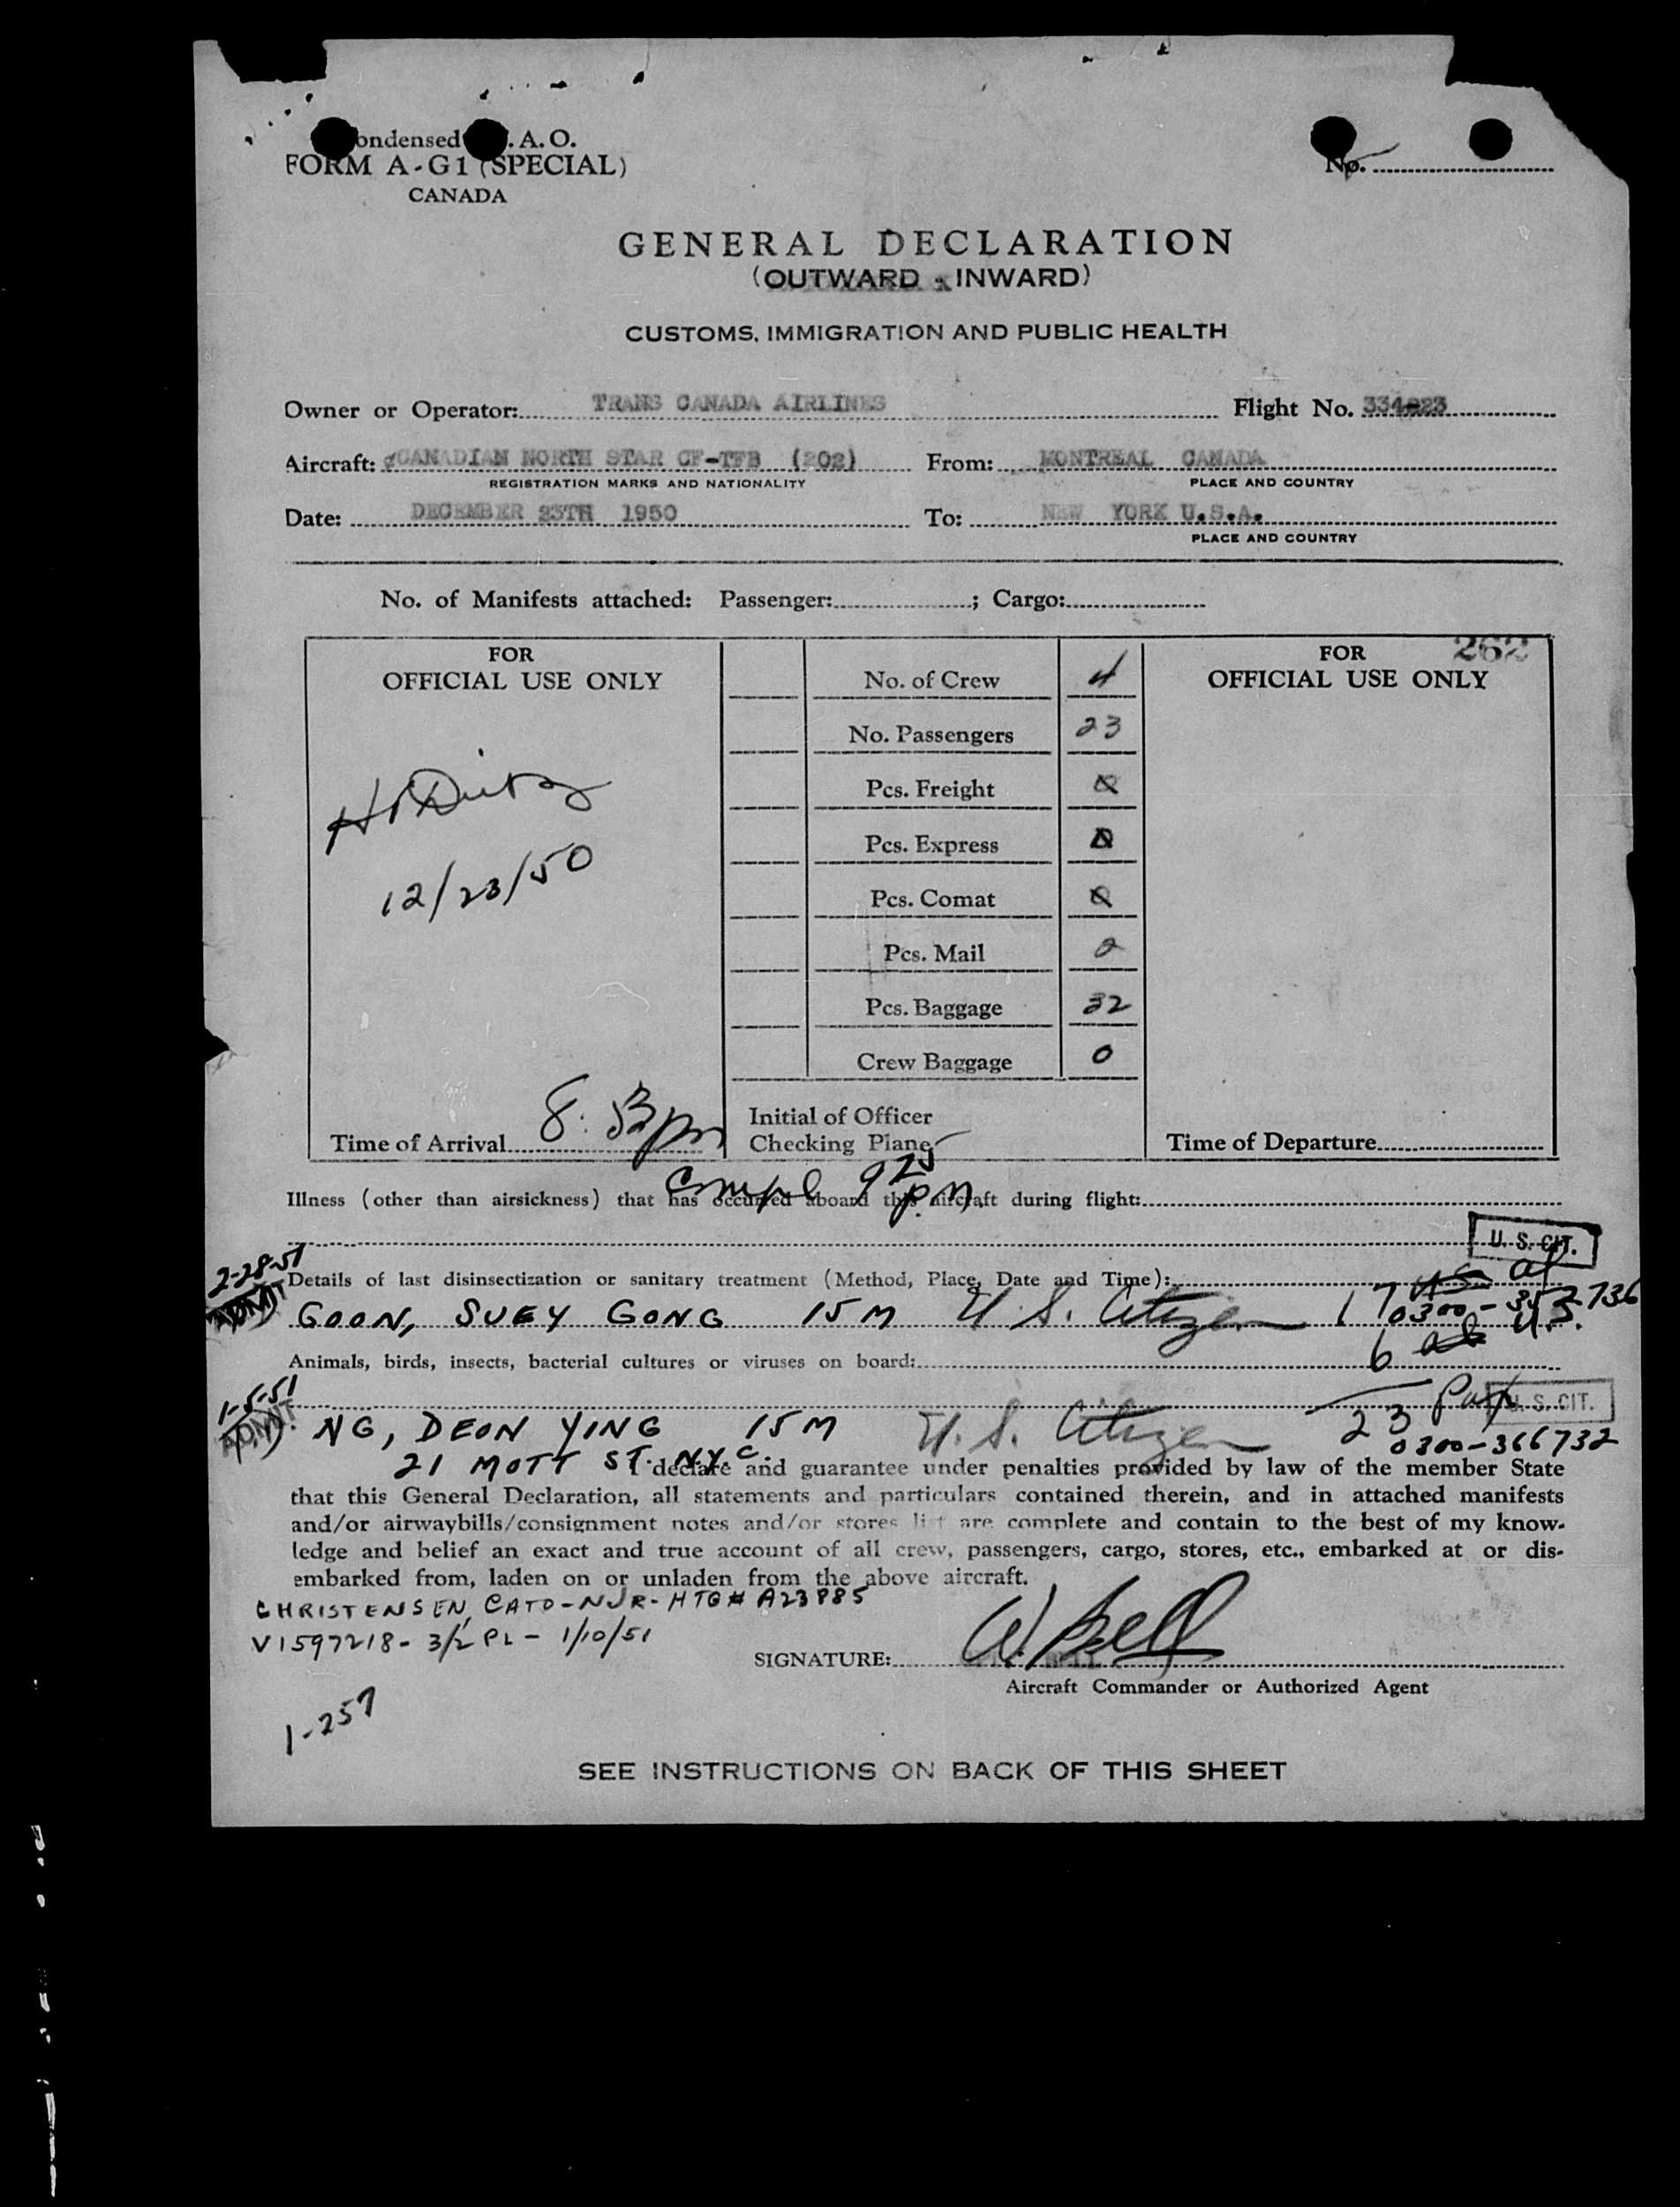 ondensed .A.O.
FORM A-G1 (SPECIAL)
CANADA
No.
GENERAL DECLARATION
(OUTWARD - INWARD)
CUSTOMS, IMMIGRATION AND PUBLIC HEALTH
Owner or Operator: TRANS CANADA AIRLINES Flight No. 334-23
Aircraft: CANADIAN NORTH STAR CF-TFB (202) From: MONTREAL CANADA
REGISTRATION MARKS AND NATIONALITY PLACE AND COUNTRY
Date: DECEMBER 23TH 1950 To: NEW YORK U.S.A.
PLACE AND COUNTRY
No. of Manifests attached: Passenger: ; Cargo:
FOR
OFFICIAL USE ONLY
12/23/50
Time of Arrival 8:53pm
No. of Crew 4
No. Passengers 23
Pcs. Freight
Pcs. Express
Pcs. Comat
Pcs. Mail
Pcs. Baggage 32
Crew Baggage 0
Initial of Officer
Checking Plane
FOR 262
OFFICIAL USE ONLY
Time of Departure
Compl 9 25 p.m.
Illness (other than airsickness) that has occurred aboard this aircraft during flight:
U. S. CIT.
2-28-51
Details of last disinsectization or sanitary treatment (Method, Place, Date and Time):
ADMIT GOON, SUEY GONG 15 M U.S. Citizen 17
6 U.S.
Animals, birds, insects, bacterial cultures or viruses on board:
1-5-51
ADMIT NG, DEON YING 15 M U.S. Citizen 23 Pax U. S. CIT.
0300-366732
21 MOTT ST. N.Y.C.
I declare and guarantee under penalties provided by law of the member State
that this General Declaration, all statements and particulars contained therein, and in attached manifests
and/or airwaybills/consignment notes and/or stores list are complete and contain to the best of my know-
ledge and belief an exact and true account of all crew, passengers, cargo, stores, etc., embarked at or dis-
embarked from, laden on or unladen from the above aircraft.
CHRISTENSEN, CATO-NJR-HTG# A23885
V1597218- 3/2 PL- 1/10/51
SIGNATURE: W. Bell
Aircraft Commander or Authorized Agent
1-257
SEE INSTRUCTIONS ON BACK OF THIS SHEET